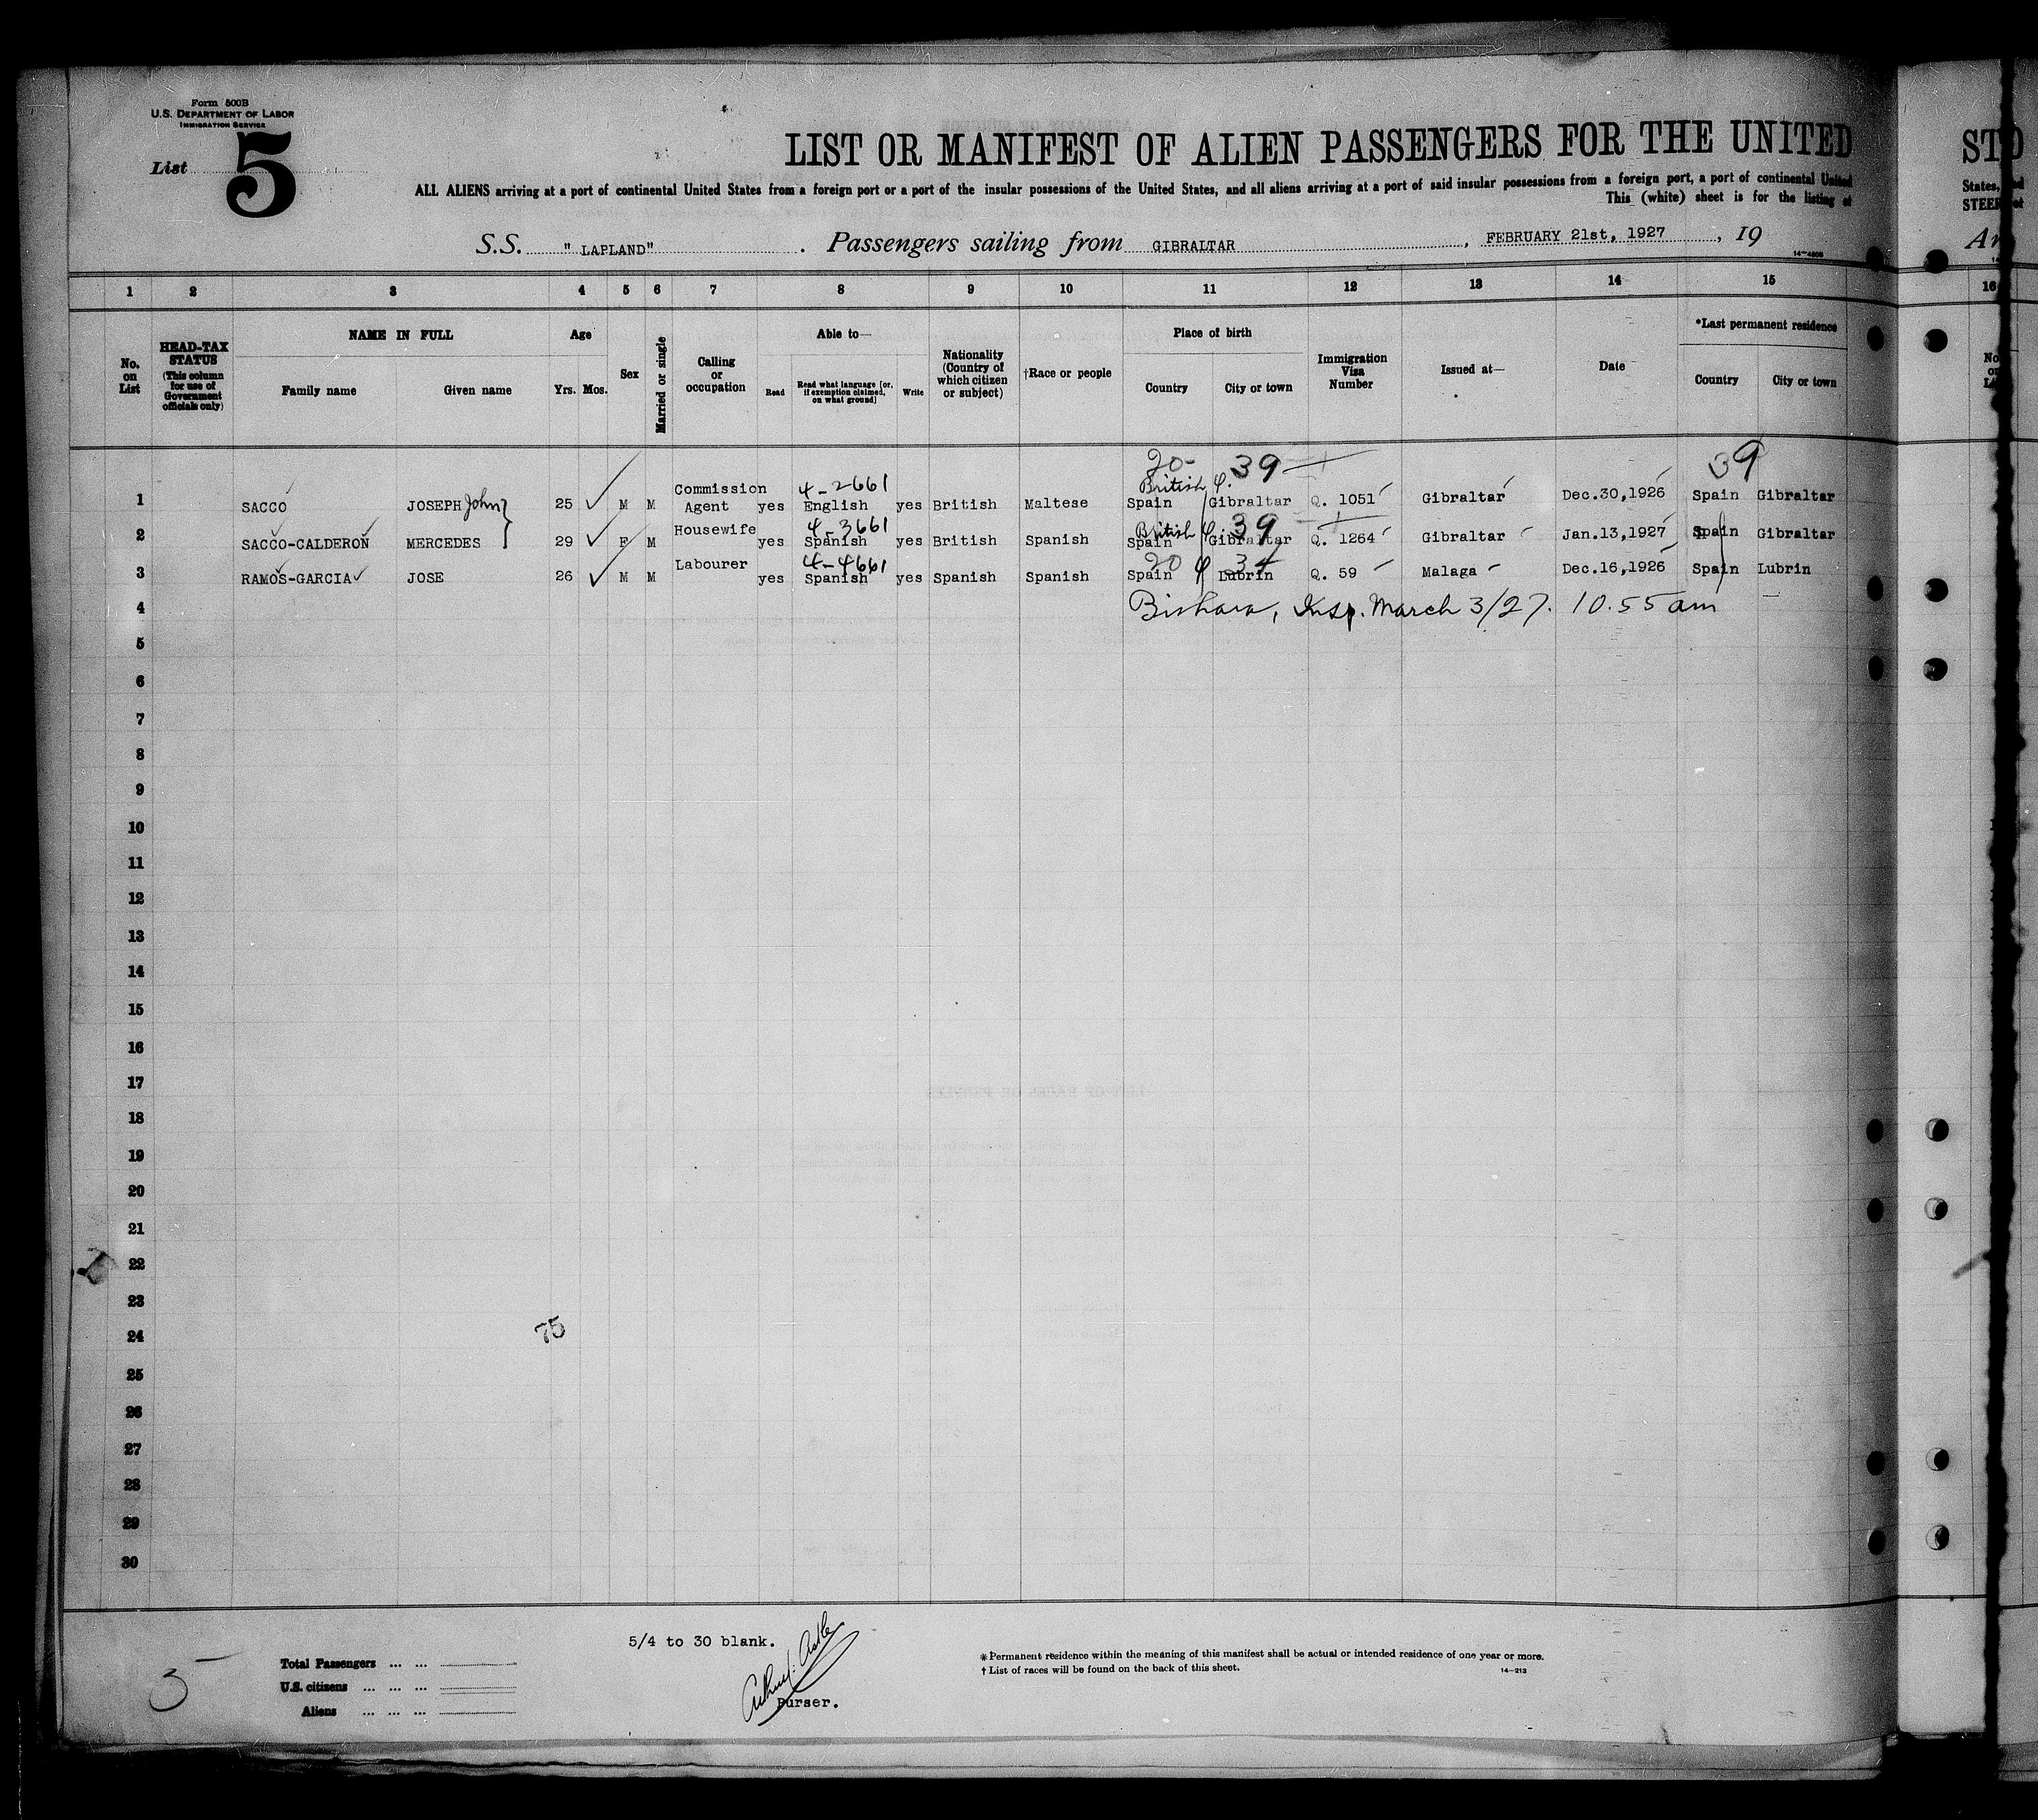 Form 500B
U.S. DEPARTMENT OF LABOR
IMMIGRATION SERVICE
List 5
LIST OR MANIFEST OF ALIEN PASSENGERS FOR THE UNITED
ALL ALIENS arriving at a port of continental United States from a foreign port or a port of the insular possessions of the United States, and all aliens arriving at a port of said insular possessions from a foreign port, a port of continental United
This (white) sheet is for the listing of
S.S. "LAPLAND". Passengers sailing from GIBRALTAR, FEBRUARY 21st, 1927, 19
1 2 3 4 5 6 7 8 9 10 11 12 13 14 15 16
No. on List
HEAD-TAX STATUS (This column for use of Government officials only)
NAME IN FULL
Family name Given name
Age
Yrs. Mos.
Sex
Married or single
Calling or occupation
Able to—
Read Read what language [or, if exemption claimed, on what ground] Write
Nationality (Country of which citizen or subject)
†Race or people
Place of birth
Country City or town
Immigration Visa Number
Issued at—
Date
*Last permanent residence
Country City or town
20- 39 39
Commission 4-2661 British
1 SACCO JOSEPH John 25 M M Agent yes English yes British Maltese Spain Gibraltar Q. 1051 Gibraltar Dec.30,1926 Spain Gibraltar
Housewife 4-3661 British 39
2 SACCO-CALDERON MERCEDES 29 F M yes Spanish yes British Spanish Spain Gibraltar Q. 1264 Gibraltar Jan.13,1927 Spain Gibraltar
Labourer 4-4661 20 34
3 RAMOS-GARCIA JOSE 26 M M yes Spanish yes Spanish Spanish Spain Lubrin Q. 59 Malaga Dec.16,1926 Spain Lubrin
4 Bishara, Insp. March 3/27. 10.55 am
5
6
7
8
9
10
11
12
13
14
15
16
17
18
19
20
21
22
23
24
75
25
26
27
28
29
30
5/4 to 30 blank.
Purser.
3
Total Passengers ... ...
U.S. citizens ... ... ...
Aliens ... ... ...
*Permanent residence within the meaning of this manifest shall be actual or intended residence of one year or more.
† List of races will be found on the back of this sheet.
14-213